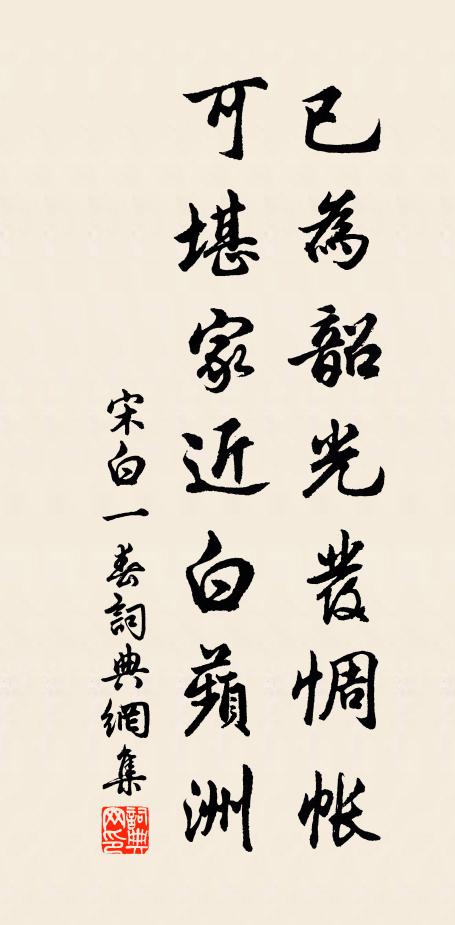 已為韶光發惆帳
可堪家近白蘋洲
宋白一春詞典網集
詞典網印